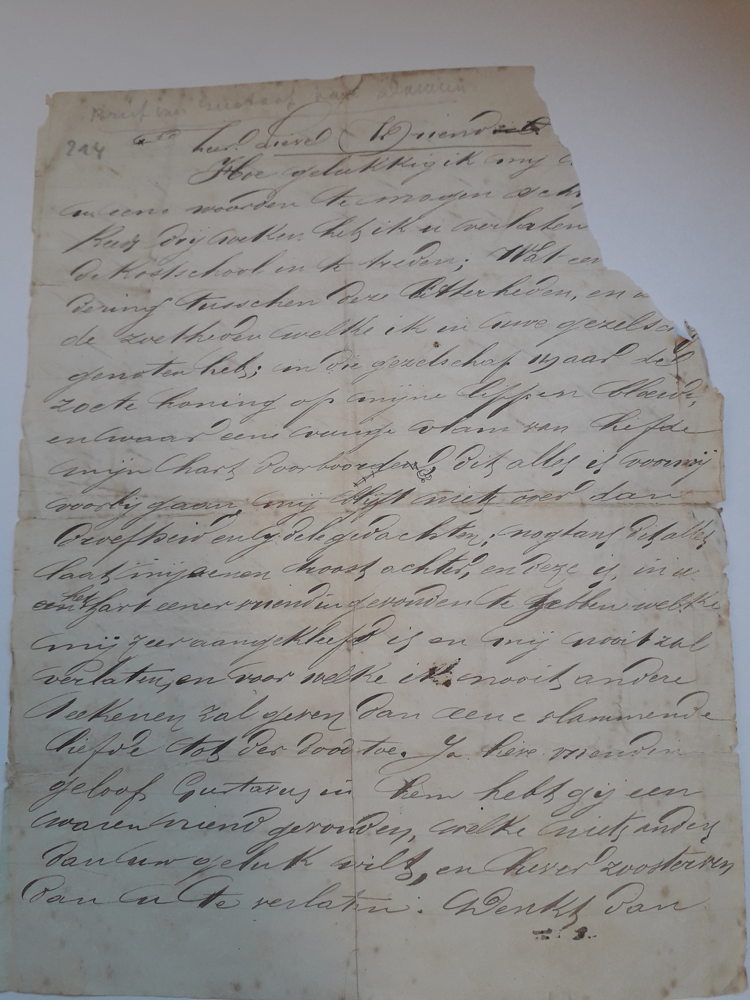 Brief van Gustaaf
224
lieve Vriend
Hoe gelukkig ik mij
eene woorden te mogen
drij weken heb ik u verlaten
de kostschool in te treden; Wat een
dering tusschen deze bitterheden, en
de zoetheden welke ik in uwe gezelsc
genoten heb; in die gezelschap waar de
zoete honing op mijne lippen vloeide,
en waar eene vlam van liefde
mijn hart doorboorde, dit alles is voor mij
voorbij gaan, mij blijft niets over dan
droefheid en ijdele gedachten; nogtans dit alles
laat mij eenen troost achter, en deze is, in u
het hart eener vriendin gevonden te hebben welke
mij zeer aangekleefd is en mij nooit zal
verlaten, en voor welke ik nooit andere
teekenen zal geven dan eene vlammende
liefde tot der dood toe. Ja lieve vriendin
geloof Gustavus in hem hebt gij een
waren vriend gevonden, welke niets anders
dan uw geluk wilt, en liever zoo sterven
dan u te verlaten. Denkt dan